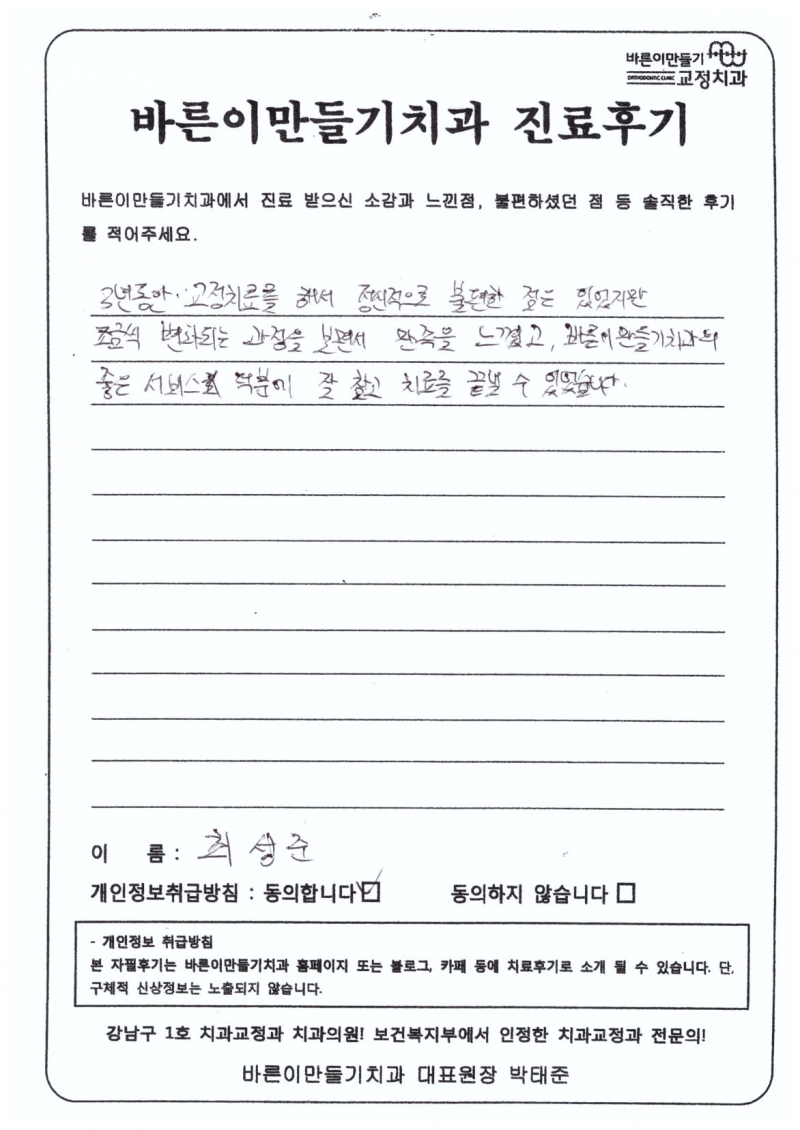 바른이만들기
ORTHODONTIC CLINIC 교정치과
바른이만들기치과 진료후기
바른이만들기치과에서 진료 받으신 소감과 느낀점, 불편하셨던 점 등 솔직한 후기
를 적어주세요.
3년동안 교정치료를 해서 정신적으로 불편한 점은 있었지만
조금씩 변화되는 과정을 보면서 만족을 느꼈고, 바른이만들기치과의
좋은 서비스 덕분에 잘 참고 치료를 끝낼 수 있었습니다.
이 름 : 최성준
개인정보취급방침 : 동의합니다 동의하지 않습니다
- 개인정보 취급방침
본 자필후기는 바른이만들기치과 홈페이지 또는 블로그, 카페 등에 치료후기로 소개 될 수 있습니다. 단,
구체적 신상정보는 노출되지 않습니다.
강남구 1호 치과교정과 치과의원! 보건복지부에서 인정한 치과교정과 전문의!
바른이만들기치과 대표원장 박태준